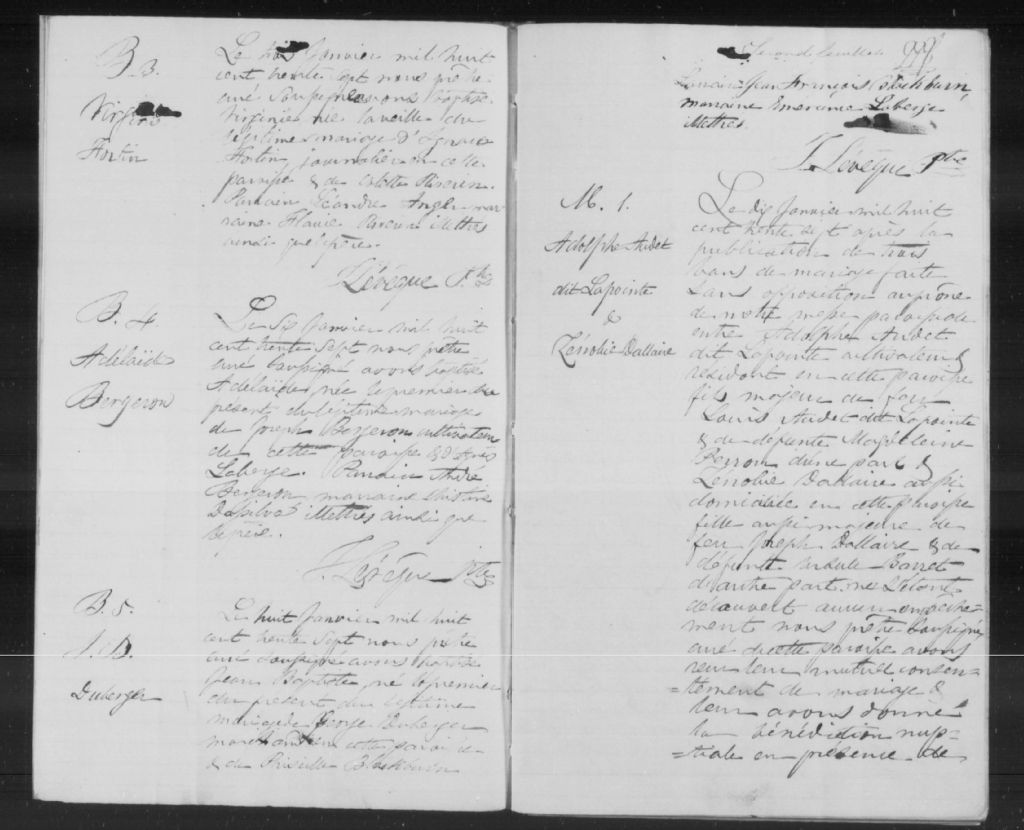 B. 3.
Virginie
Fortin
Le trois Janvier mil huit
cent trente sept nous prêtre
curé soussigné avons baptisé
Virginie née la veille du
légitime mariage d'Ignace
Fortin, journalier en cette
paroisse & de
Parrain Léandre Angle mar-
raine Flavie illettrés
ainsi que le père.
Lévêque Ptre
B. 4.
Adélaïde
Bergeron
Le Six Janvier mil huit
cent trente Sept nous prêtre
curé soussigné avons baptisé
Adelaïde née le premier du
présent du légitime mariage
de Joseph Bergeron cultivateur
de cette paroisse &
Laberge. Parrain André
Bergeron, marraine Christine
Dasilva illettrés ainsi que
le père.
J. Lévêque Ptre
B. 5.
J. B.
Duberger
Le huit Janvier mil huit
cent trente Sept nous prêtre
curé soussigné avons baptisé
Jean Baptiste, né le premier
du présent du légitime
mariage de George Duberger
marchand en cette paroisse
& de Blackburn
Second feuillet
Parrain Jean François Blackburn,
marraine Emérence Laberge
illettrés.
J. Lévêque Ptre
M. 1.
Adolphe Audet
dit Lapointe
&
Zénobie Dallaire
Le dix Janvier mil huit
cent trente sept après la
publication de trois
bans de mariage faite
sans opposition au prône
de notre messe paroissiale
entre Adolphe Audet
dit Lapointe cultivateur
résidant en cette paroisse
fils majeur de feu
Louis Audet dit Lapointe
& de défunte Magdeleine
Perron d'une part &
Zénobie Dallaire aussi
domiciliée en cette paroisse
fille aussi majeure de
feu Joseph Dallaire & de
défunte
d'autre part, ne s'étant
découvert aucun empêche-
ment nous prêtre soussigné
curé de cette paroisse avons
reçu leur mutuel consen-
=tement de mariage &
leur avons donné
la bénédiction nup=
=tiale en présence de